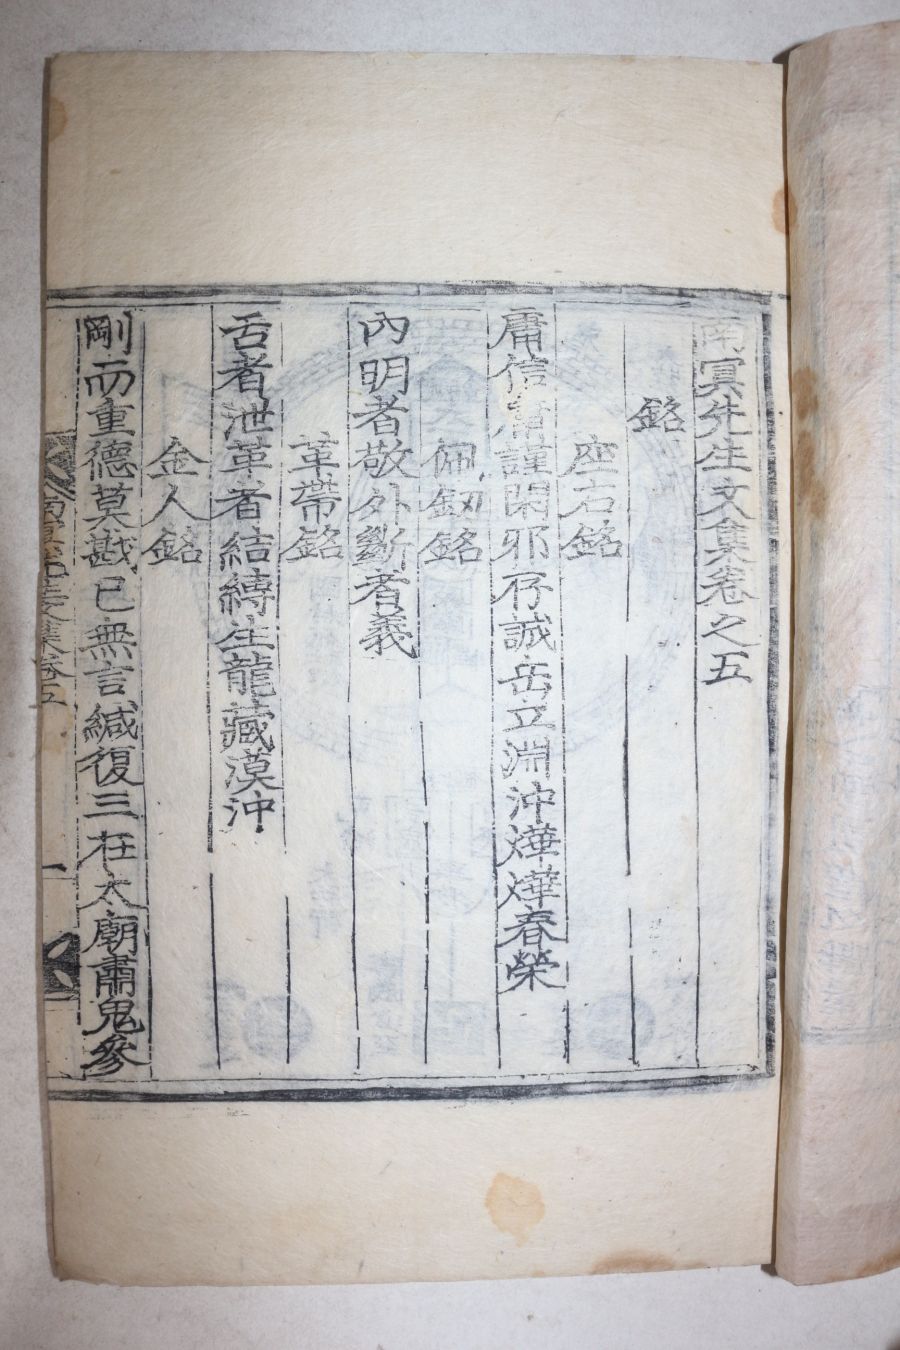 南冥先生文集卷之五
銘
座右銘
庸信庸謹閑邪存誠岳立淵沖燁燁春榮
佩釰銘
內明者敬外斷者義
革帶銘
舌者泄革者結縛生龍藏漠沖
金人銘
剛而重德莫戡已無言緘復三在太廟肅鬼參
南冥先生文集卷五
一